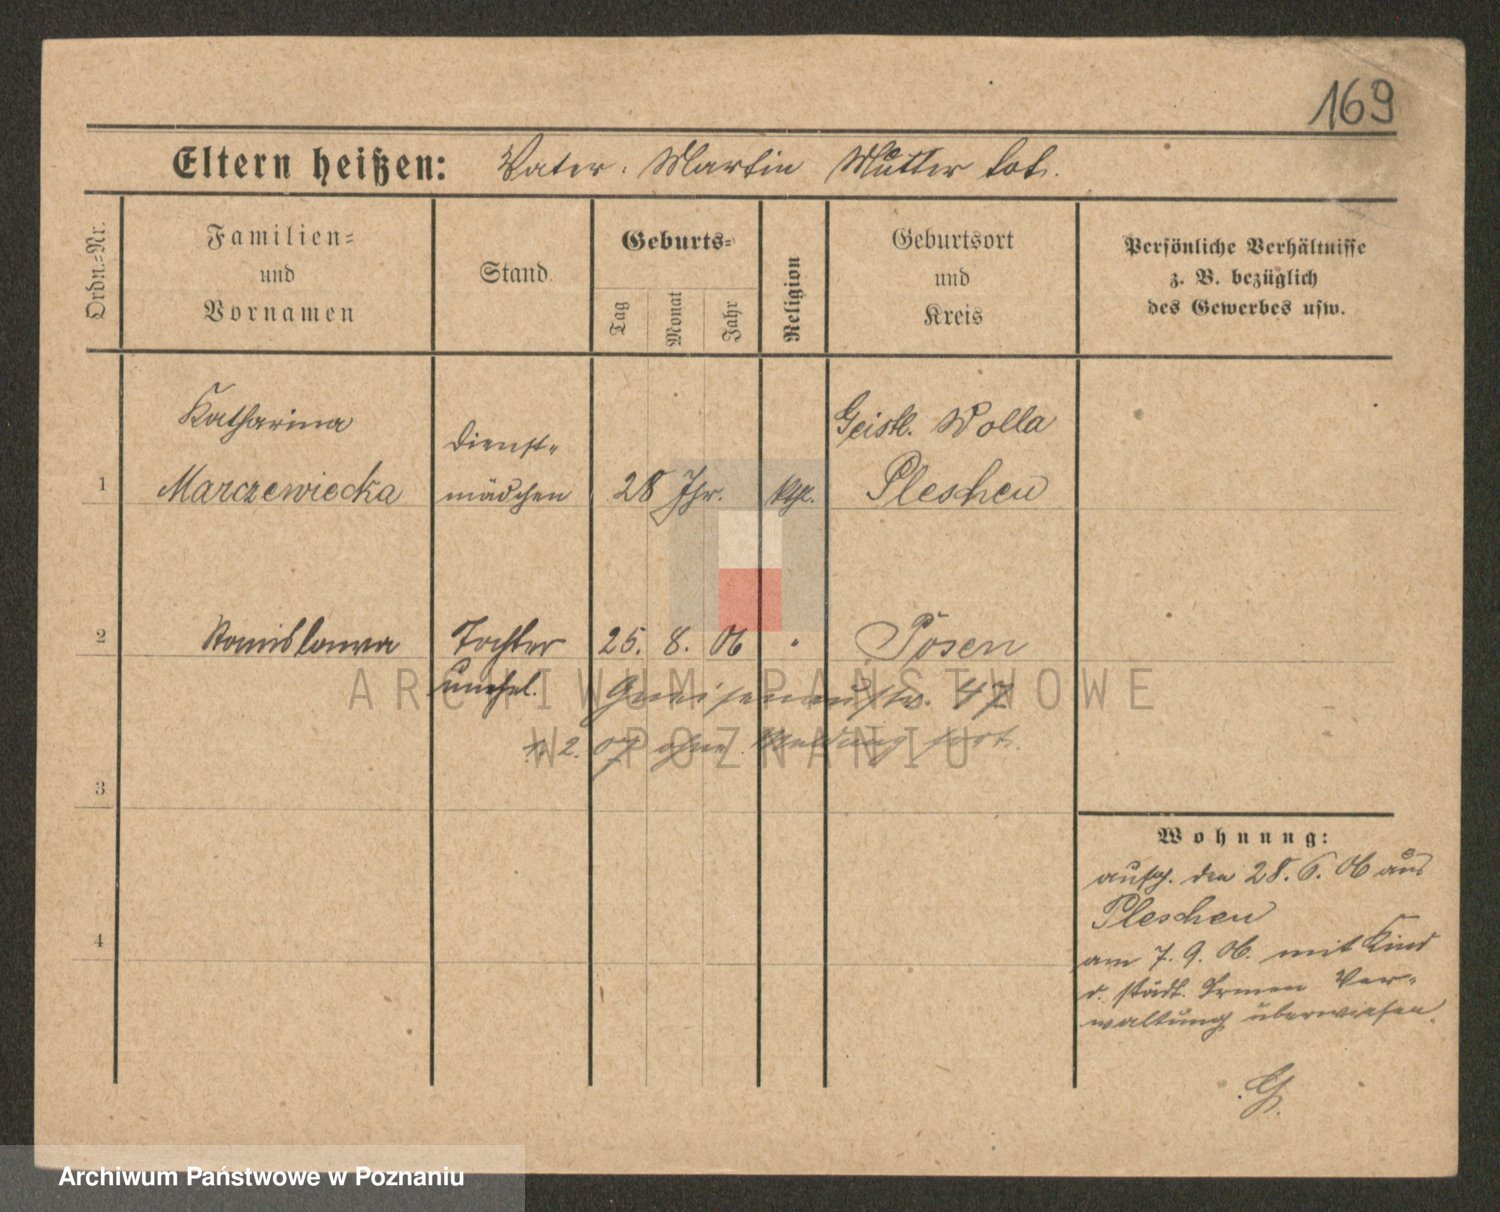 169
Eltern heißen: Vater: Martin Mutter tot.
Ordn.=Nr.
Familien=
und
Vornamen
Stand
Geburts=
Tag
Monat
Jahr
Religion
Geburtsort
und
Kreis
Persönliche Verhältnisse
z. B. bezüglich
des Gewerbes usw.
1
Katharina
Marczewiecka
Dienst=
mädchen
28 Jhr.
kth.
Geistl. Wolla
Pleschen
2
Stanislawa
Tochter
unehel.
25. 8. 06
Posen
Gneisenaustr. 47
2. 07 ohne Meldung fort.
3
4
Wohnung:
den 28. 6. 06 aus
Pleschen
am 7. 9. 06. mit Kind
d. städt. Armen Ver=
waltung überwiesen.
ARCHIWUM PAŃSTWOWE
W POZNANIU
Archiwum Państwowe w Poznaniu